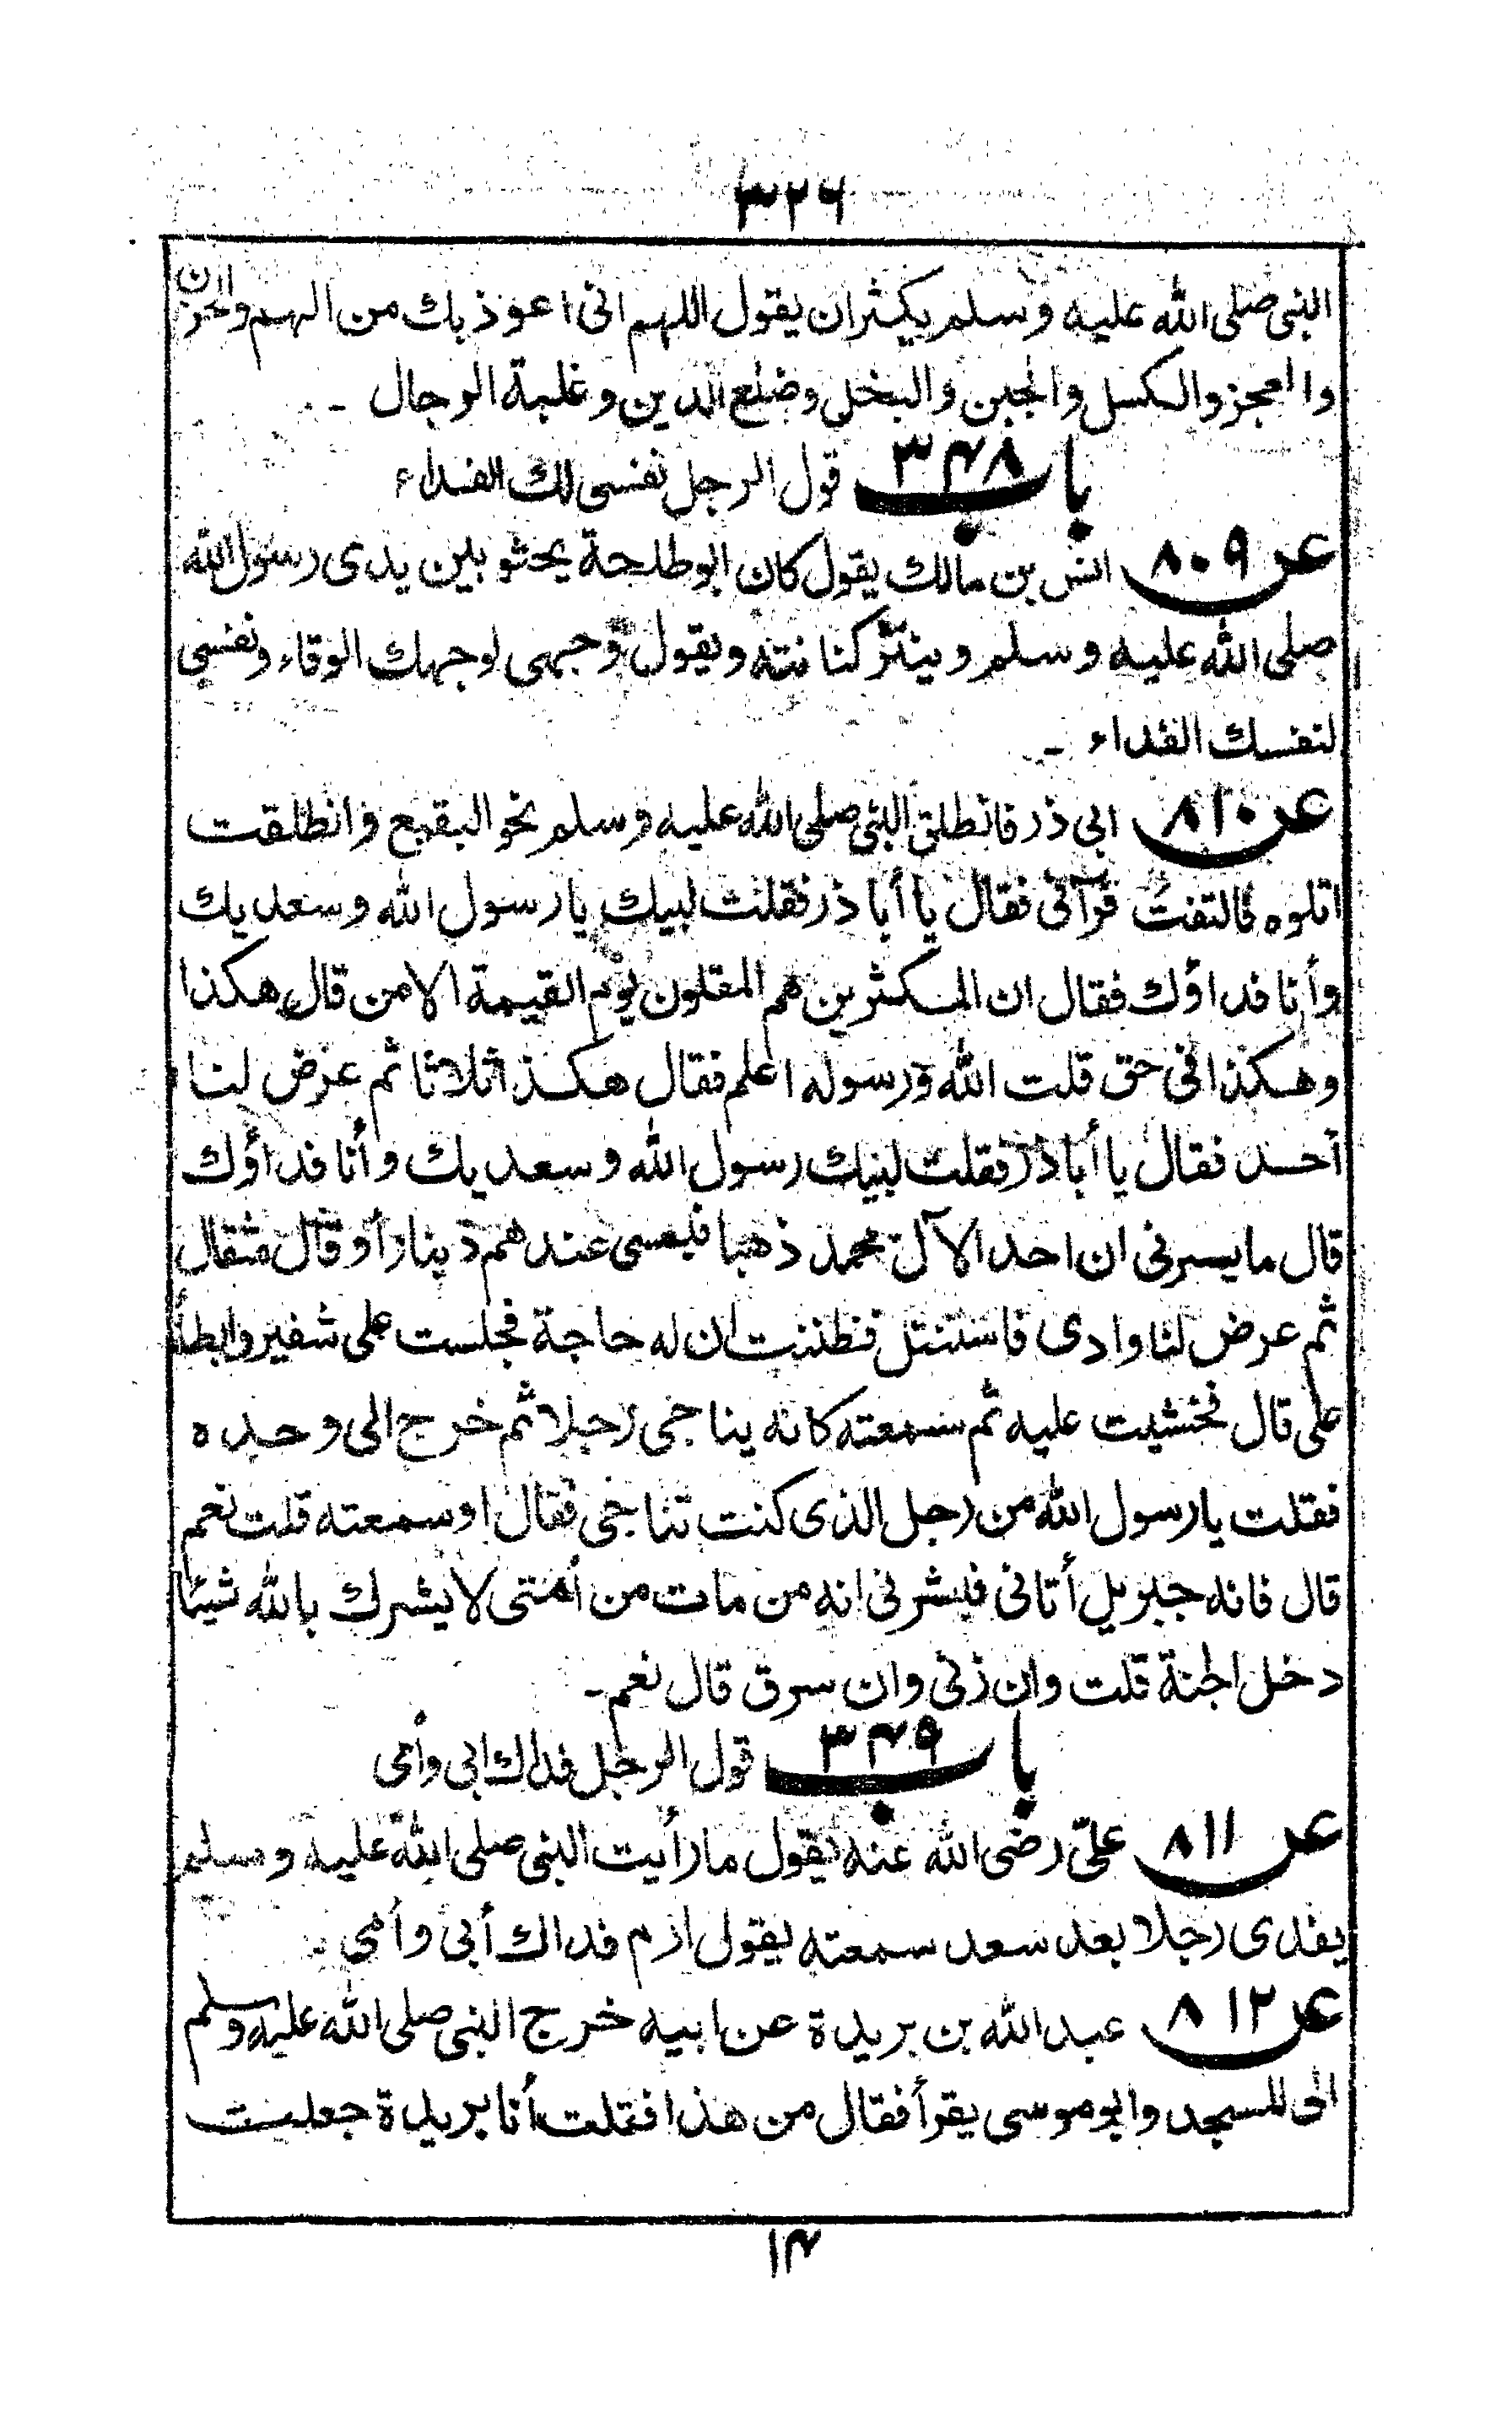 ٣٢٦
النبی صلی الله علیه وسلم یکثر ان یقول اللهم انی اعوذ بك من الهم والحزن
والعجز والکسل والجبن والبخل وضلع الدین وغلبة الرجال ـ
باب ٣٤٨ قول الرجل نفسی لك الفداء
عن ٨٠٩ انس بن مالك یقول کان ابو طلحة یحثو بین یدی رسول الله
صلی الله علیه وسلم وینثر کنانته ویقول وجهی لوجهك الوقاء ونفسی
لنفسك الفداء ـ
عن ٨١٠ ابی ذر فانطلق النبی صلی الله علیه وسلم نحو البقیع وانطلقت
اتلوه فالتفت فرآنی فقال یا أبا ذر فقلت لبیك یا رسول الله وسعدیك
وأنا فداؤك فقال ان المکثرین هم المقلون یوم القیمة الا من قال هکذا
وهکذا فی حق قلت الله ورسوله اعلم فقال هکذا ثلاثا ثم عرض لنا
أحد فقال یا أبا ذر فقلت لبیك رسول الله وسعدیك وأنا فداؤك
قال ما یسرنی ان احدا لآل محمد ذهبا فیمسی عندهم دینار أو قال مثقال
ثم عرض لنا وادی فاستنتل فظننت ان له حاجة فجلست علی شفیر وابطأ
علی قال فخشیت علیه ثم سمعته کانه یناجی رجلا ثم خرج الی وحده
فقلت یا رسول الله من رجل الذی کنت تناجی فقال اوسمعته قلت نعم
قال فانه جبریل أتانی فبشرنی انه من مات من أمتی لا یشرك بالله شیئا
دخل الجنة قلت وان زنی وان سرق قال نعم ـ
باب ٣٤٩ قول الرجل فداك ابی وأمی
عن ٨١١ علیّ رضی الله عنه یقول ما رأیت النبی صلی الله علیه وسلم
یفدی رجلا بعد سعد سمعته یقول ارم فداك أبی وأمی ـ
عن ٨١٢ عبد الله بن بریدة عن ابیه خرج النبی صلی الله علیه وسلم
الی المسجد وابو موسی یقرأ فقال من هذا فقلت أنا بریدة جعلت
١٤